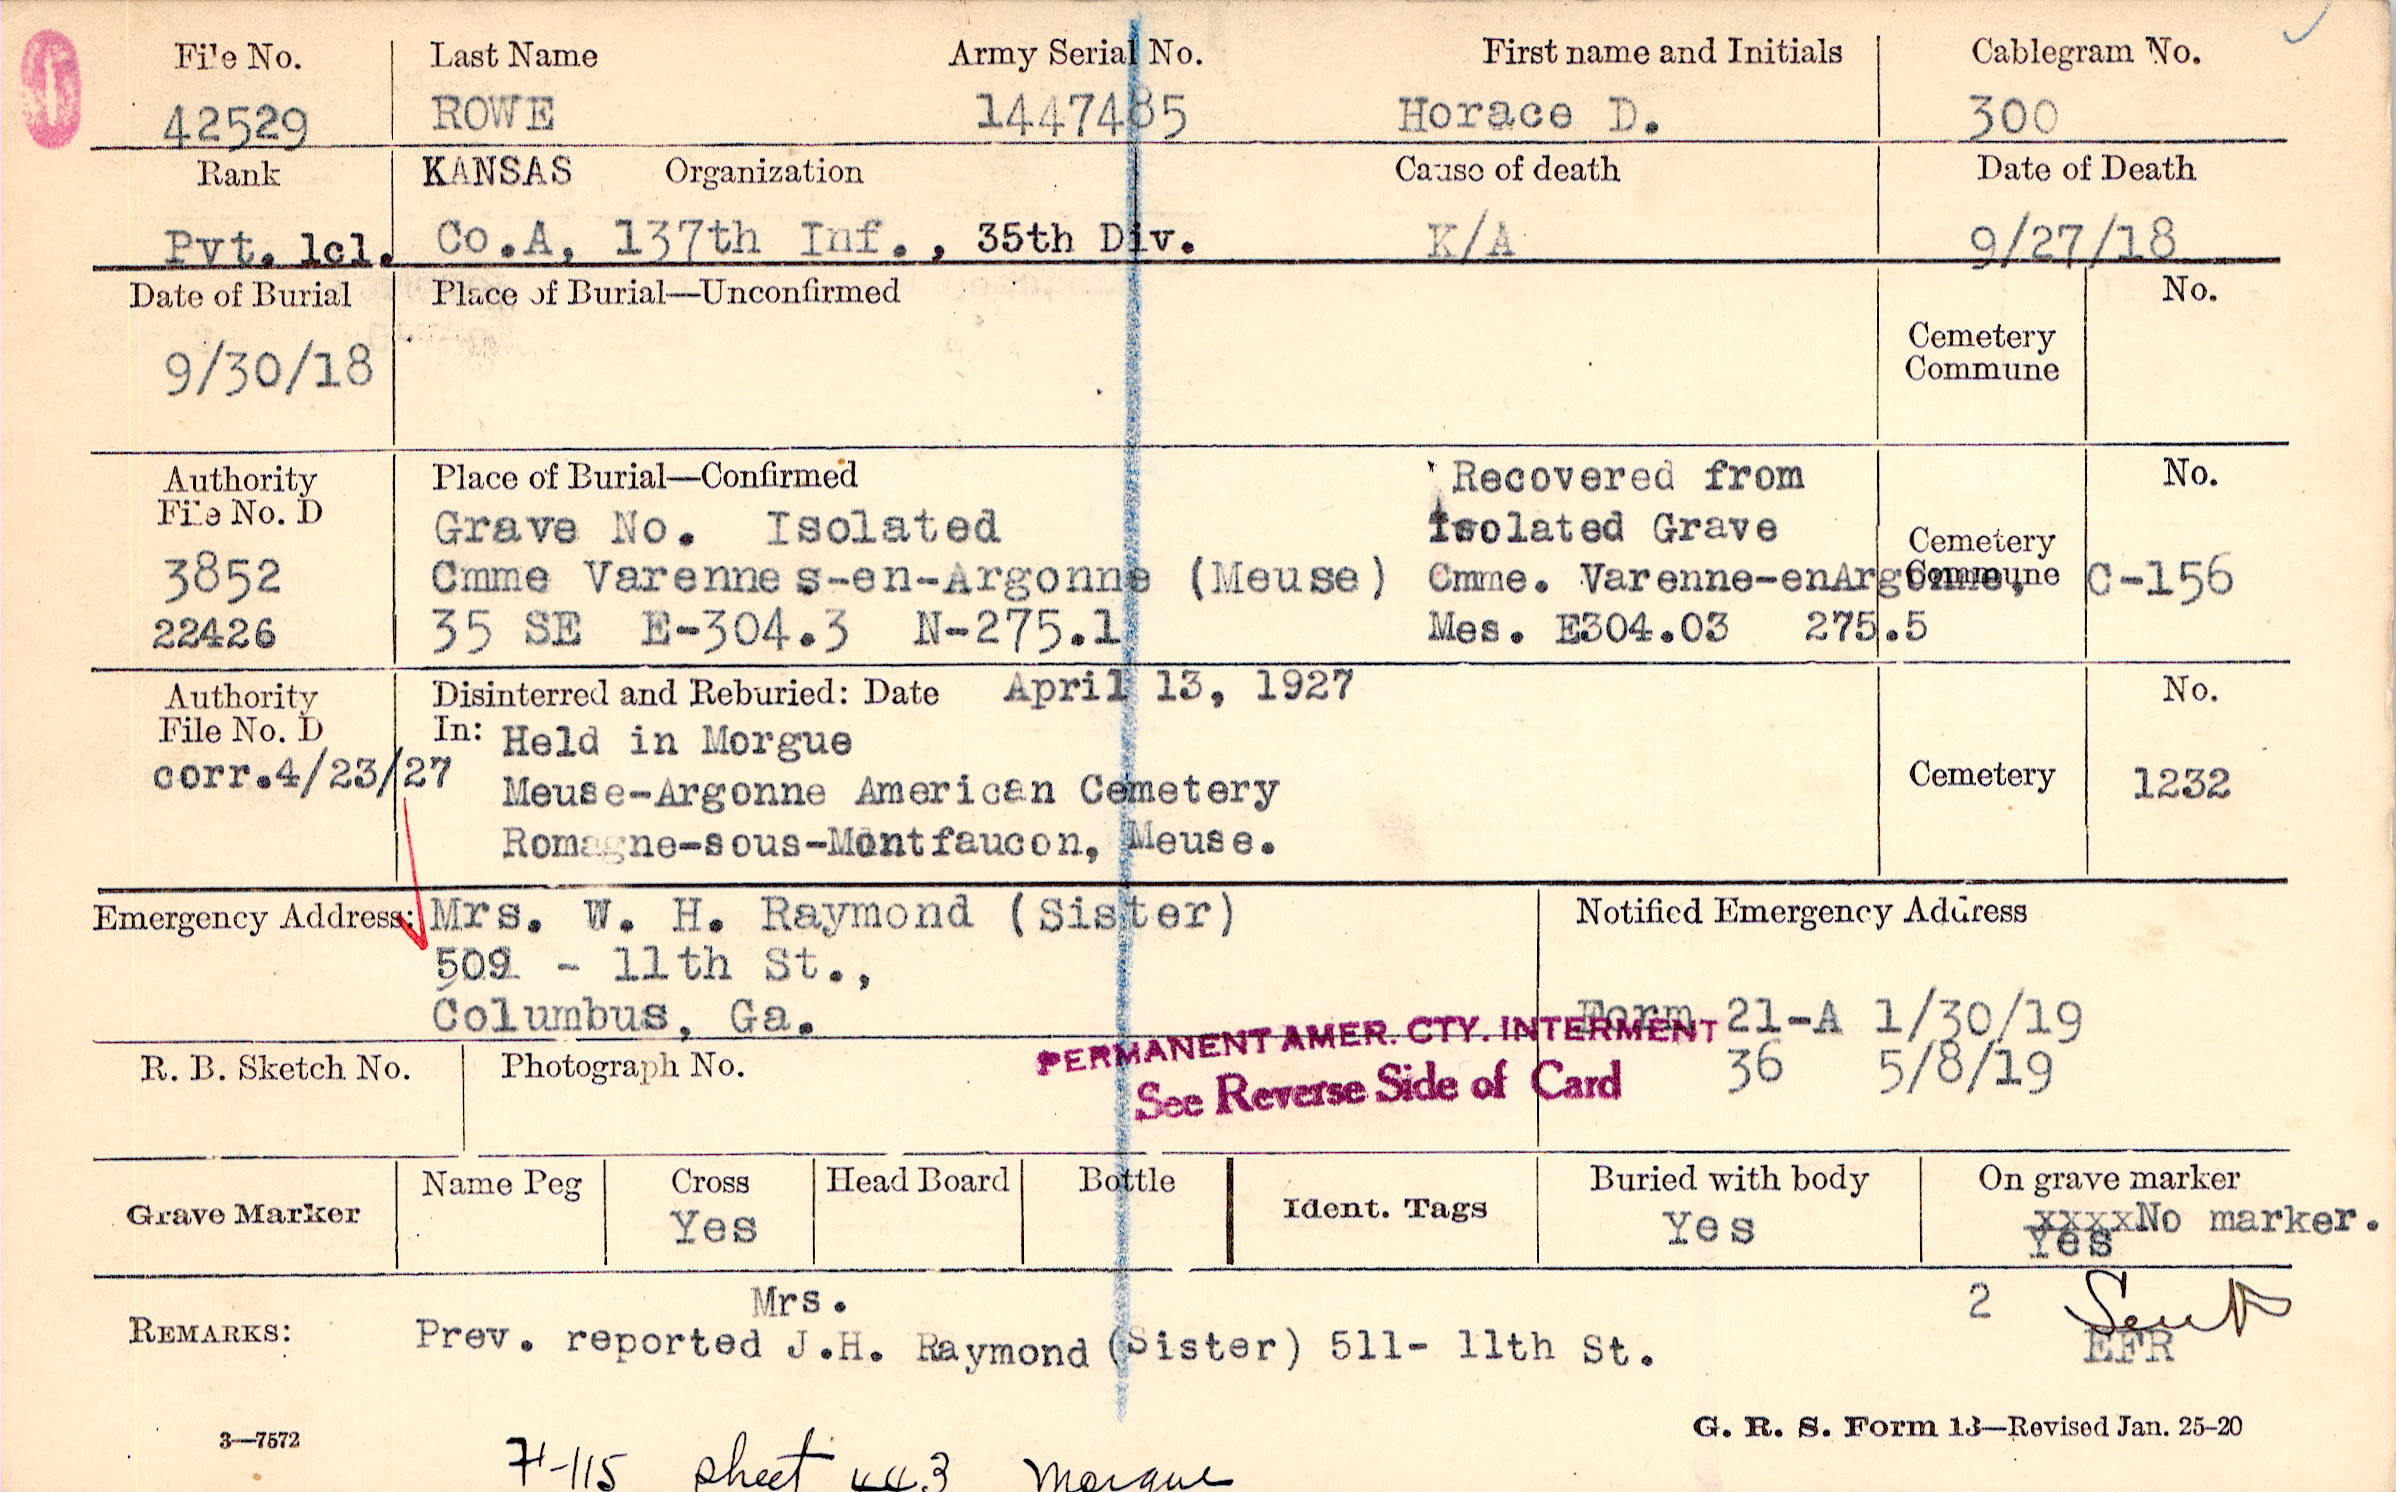 File No. Last Name Army Serial No. First name and Initials Cablegram No.
42529 ROWE 1447485 Horace D. 300
Rank KANSAS Organization Cause of death Date of Death
Pvt. 1cl. Co.A, 137th Inf., 35th Div. K/A 9/27/18
Date of Burial Place of Burial—Unconfirmed No.
9/30/18 Cemetery
Commune
Authority Place of Burial—Confirmed Recovered from No.
File No. D Grave No. Isolated Isolated Grave Cemetery
3852 Cmme Varennes-en-Argonne (Meuse) Cmme. Varenne-enArgonne, Commune C-156
22426 35 SE E-304.3 N-275.1 Mes. E304.03 275.5
Authority Disinterred and Reburied: Date April 13, 1927 No.
File No. D In: Held in Morgue
corr.4/23/27 Meuse-Argonne American Cemetery Cemetery 1232
Romagne-sous-Montfaucon, Meuse.
Emergency Address: Mrs. W. H. Raymond (Sister) Notified Emergency Address
509 - 11th St.,
Columbus, Ga. Form 21-A 1/30/19
PERMANENT AMER. CTY. INTERMENT
R. B. Sketch No. Photograph No. 36 5/8/19
See Reverse Side of Card
Grave Marker Name Peg Cross Head Board Bottle Ident. Tags Buried with body On grave marker
Yes Yes xxxxNo marker.
Yes
Mrs. 2 Sent
REMARKS: Prev. reported J.H. Raymond (Sister) 511- 11th St. EFR
3—7572 G. R. S. Form 13—Revised Jan. 25-20
7-115 sheet 443 Morgue